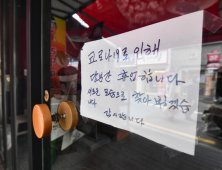 코로나19로 인해
당분간 휴업합니다
새로운 모습으로 찾아뵙겠습
니다
감사합니다